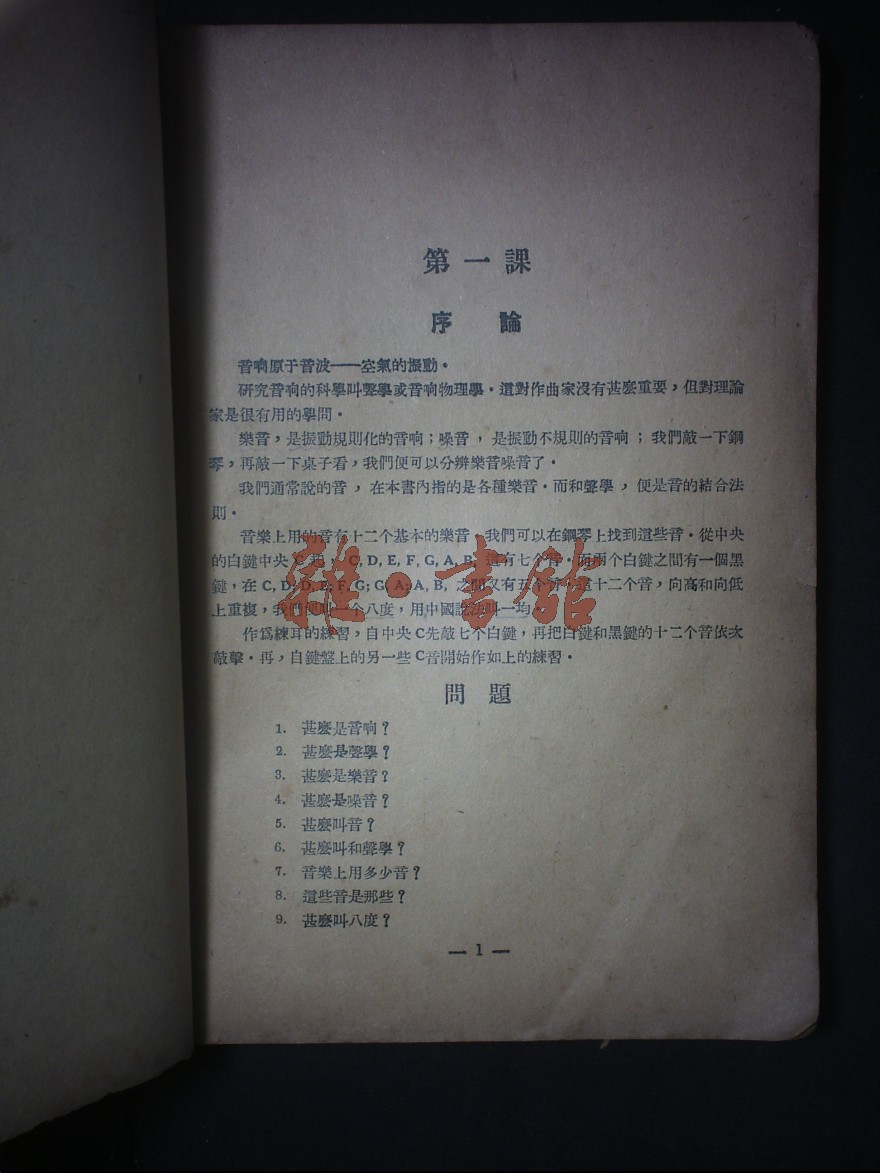 第一課
序論
音响原于音波——空氣的振動。
研究音响的科學叫聲學或音响物理學。這對作曲家沒有甚麽重要，但對理論
家是很有用的學問。
樂音，是振動規則化的音响；噪音，是振動不規則的音响；我們敲一下鋼
琴，再敲一下桌子看，我們便可以分辨樂音噪音了。
我們通常說的音，在本書內指的是各種樂音。而和聲學，便是音的結合法
則。
音樂上用的音有十二个基本的樂音，我們可以在鋼琴上找到這些音。從中央
的白鍵中央C起，C, D, E, F, G, A, B, 這有七个音。而兩个白鍵之間有一個黑
鍵，在 C, D; D, E; F, G; G, A; A, B, 之間又有五个音。這十二个音，向高和向低
上重複，我們便叫一个八度，用中國說法叫一均。
作爲練耳的練習，自中央C先敲七个白鍵，再把白鍵和黑鍵的十二个音依次
敲擊。再，自鍵盤上的另一些C音開始作如上的練習。
雜·書館
問題
1. 甚麽是音响？
2. 甚麽是聲學？
3. 甚麽是樂音？
4. 甚麽是噪音？
5. 甚麽叫音？
6. 甚麽叫和聲學？
7. 音樂上用多少音？
8. 這些音是那些？
9. 甚麽叫八度？
— 1 —